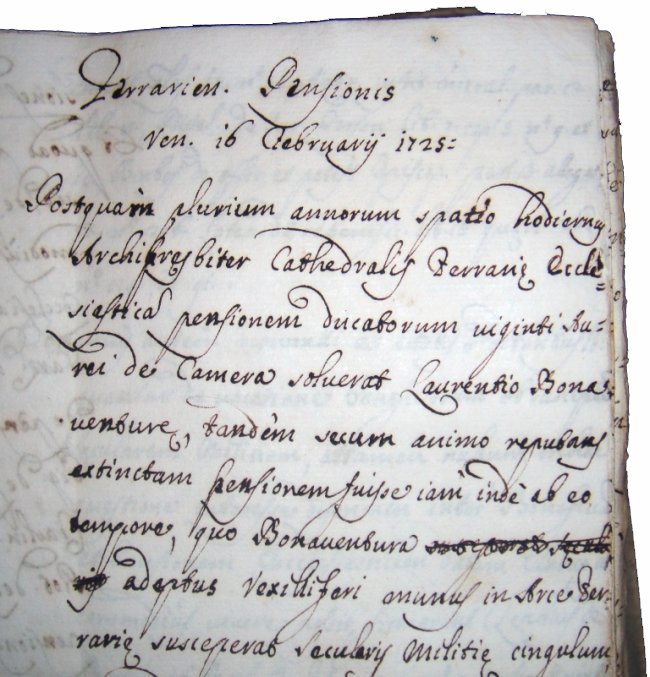 Ferrarien. Pensionis
Ven. 16 Februarij 1725=
Postquam plurium annorum spatio hodiernus
Archipresbiter Cathedralis Ferrarię Eccle=
siastica pensionem ducatorum viginti Au=
rei de Camera solverat Laurentio Bona=
venturę, tandèm secum animo reputans
extinctam pensionem fuisse iam indè ab eo
tempore, quo Bonaventura
adeptus Vexilliferi munus in Arce Fer=
rarię susceperat secularis Militię cingulum